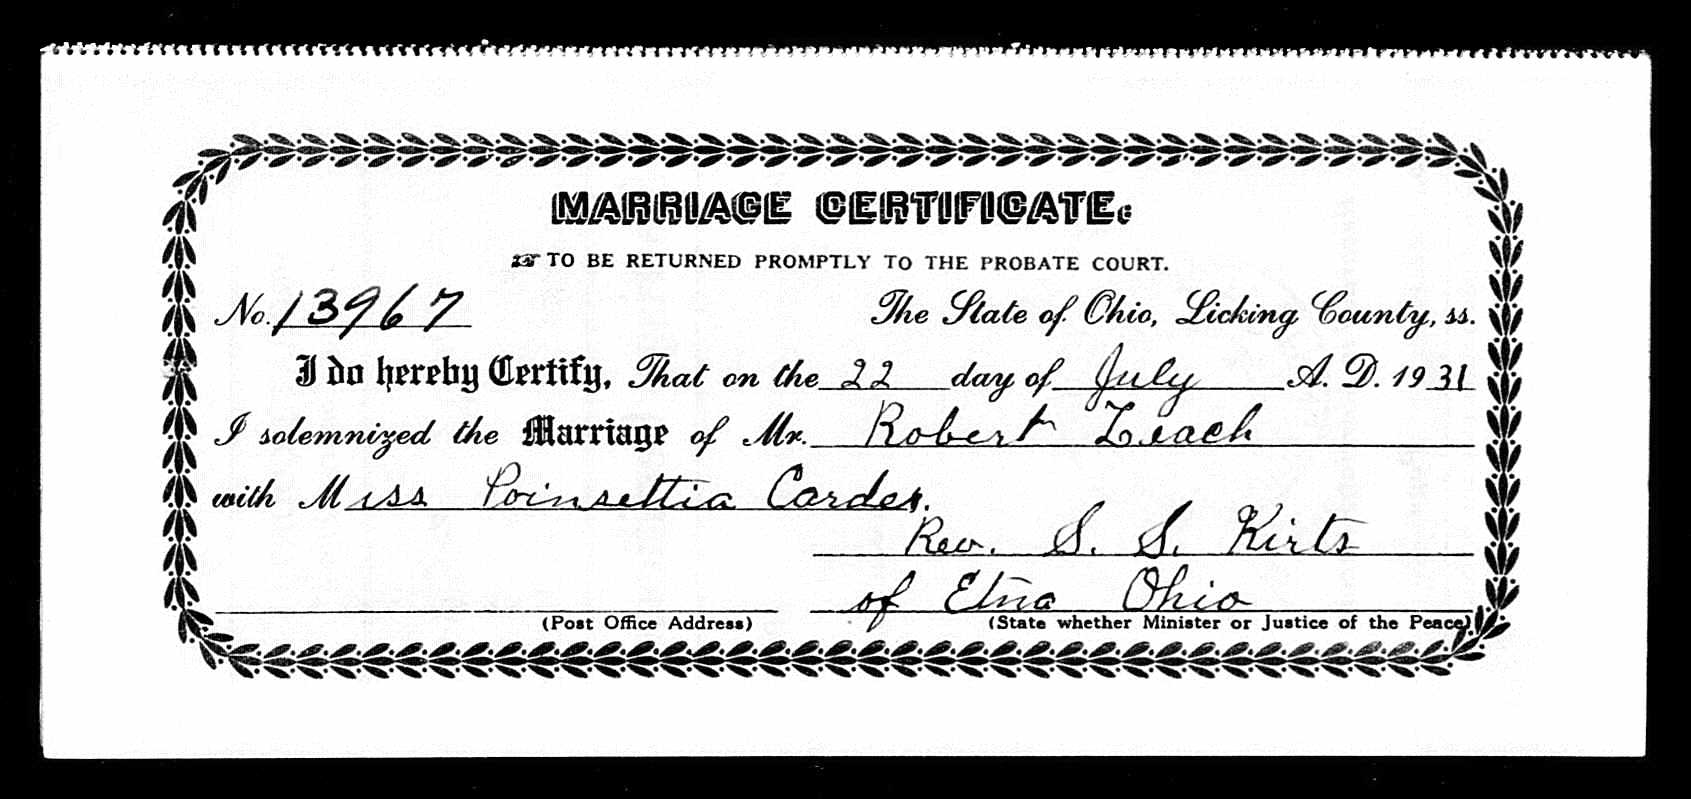 MARRIAGE CERTIFICATE.
☞ TO BE RETURNED PROMPTLY TO THE PROBATE COURT.
No. 13967 The State of Ohio, Licking County, ss.
I do hereby Certify, That on the 22 day of July A. D. 1931
I solemnized the Marriage of Mr. Robert Leach
with Miss Poinsettia Carder.
Rev. S. S. Kirts
of Etna Ohio
(Post Office Address) (State whether Minister or Justice of the Peace)